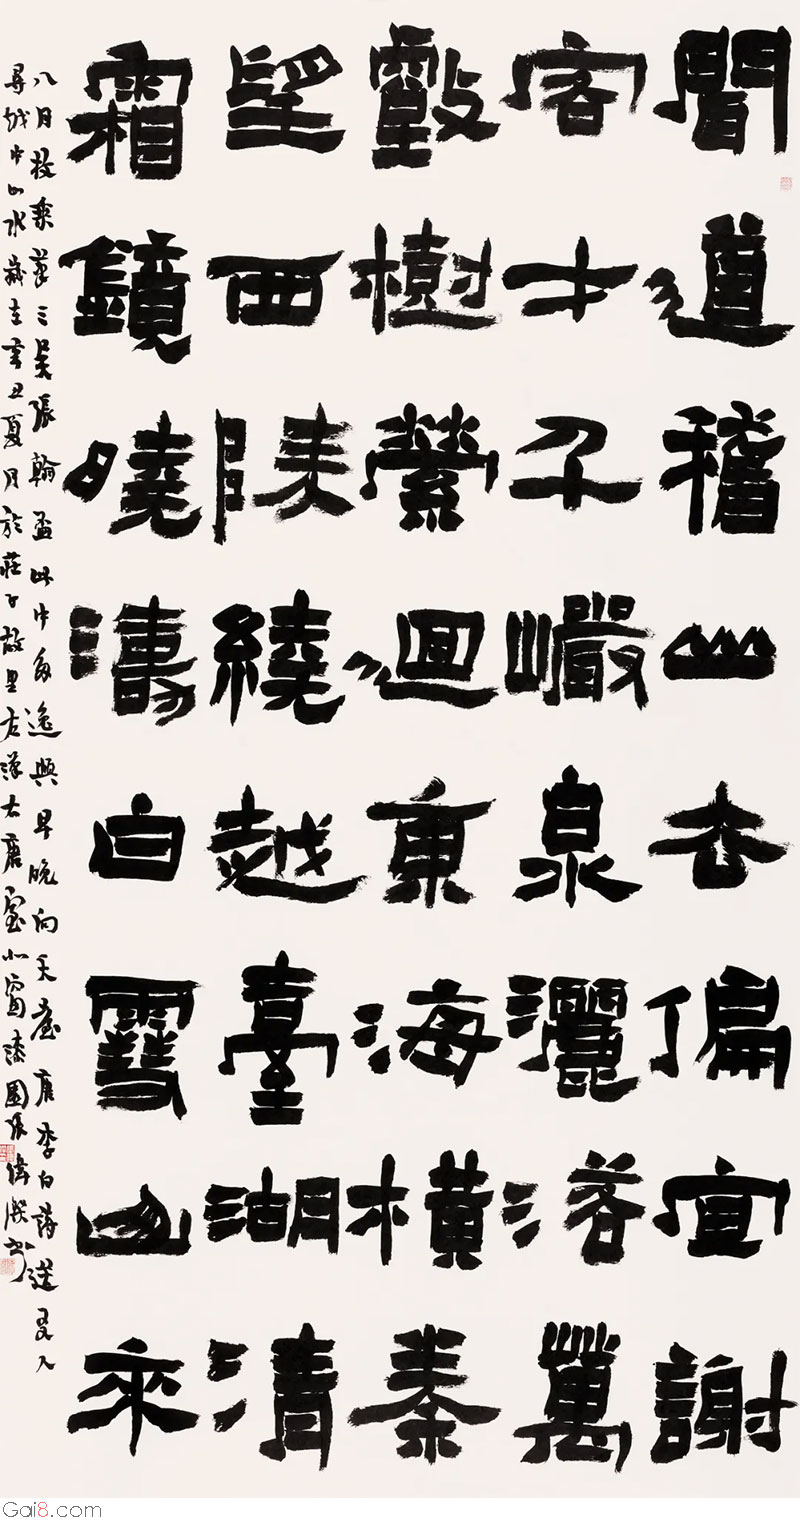 聞道稽山去偏宜謝
客才千巖泉灑落萬
壑樹縈迴東海橫秦
望西陵繞越臺湖清
霜鏡曉濤白雪山來
八月枚乘筆三吳張翰盃此中多逸興早晚向天臺唐李白詩送友人
尋越中山水歲在辛丑夏月於莊子故里古漆大唐室漆園張偉書
Gai8.com